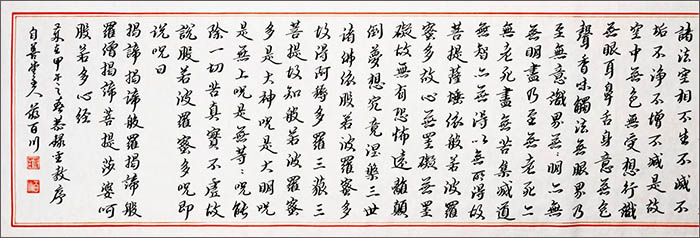 諸法空相不生不滅不
垢不淨不增不減是故
空中無色無受想行識
無眼耳鼻舌身意無色
聲香味觸法無眼界乃
至無意識界無〻明亦無
無明盡乃至無老死亦
無老死盡無苦集滅道
無智亦無得以無所得故
菩提薩埵依般若波羅
蜜多故心無罣礙無罣
礙故無有恐怖遠離顛
倒夢想究竟涅槃三世
諸佛依般若波羅蜜多
故得阿耨多羅三藐三
菩提故知般若波羅蜜
多是大神咒是大明咒
是無上咒是無等〻咒能
除一切苦真實不虛故
說般若波羅蜜多咒即
說咒曰
揭諦揭諦般羅揭諦般
羅僧揭諦菩提莎婆呵
般若多心經
甲午之春恭錄聖教序
百川